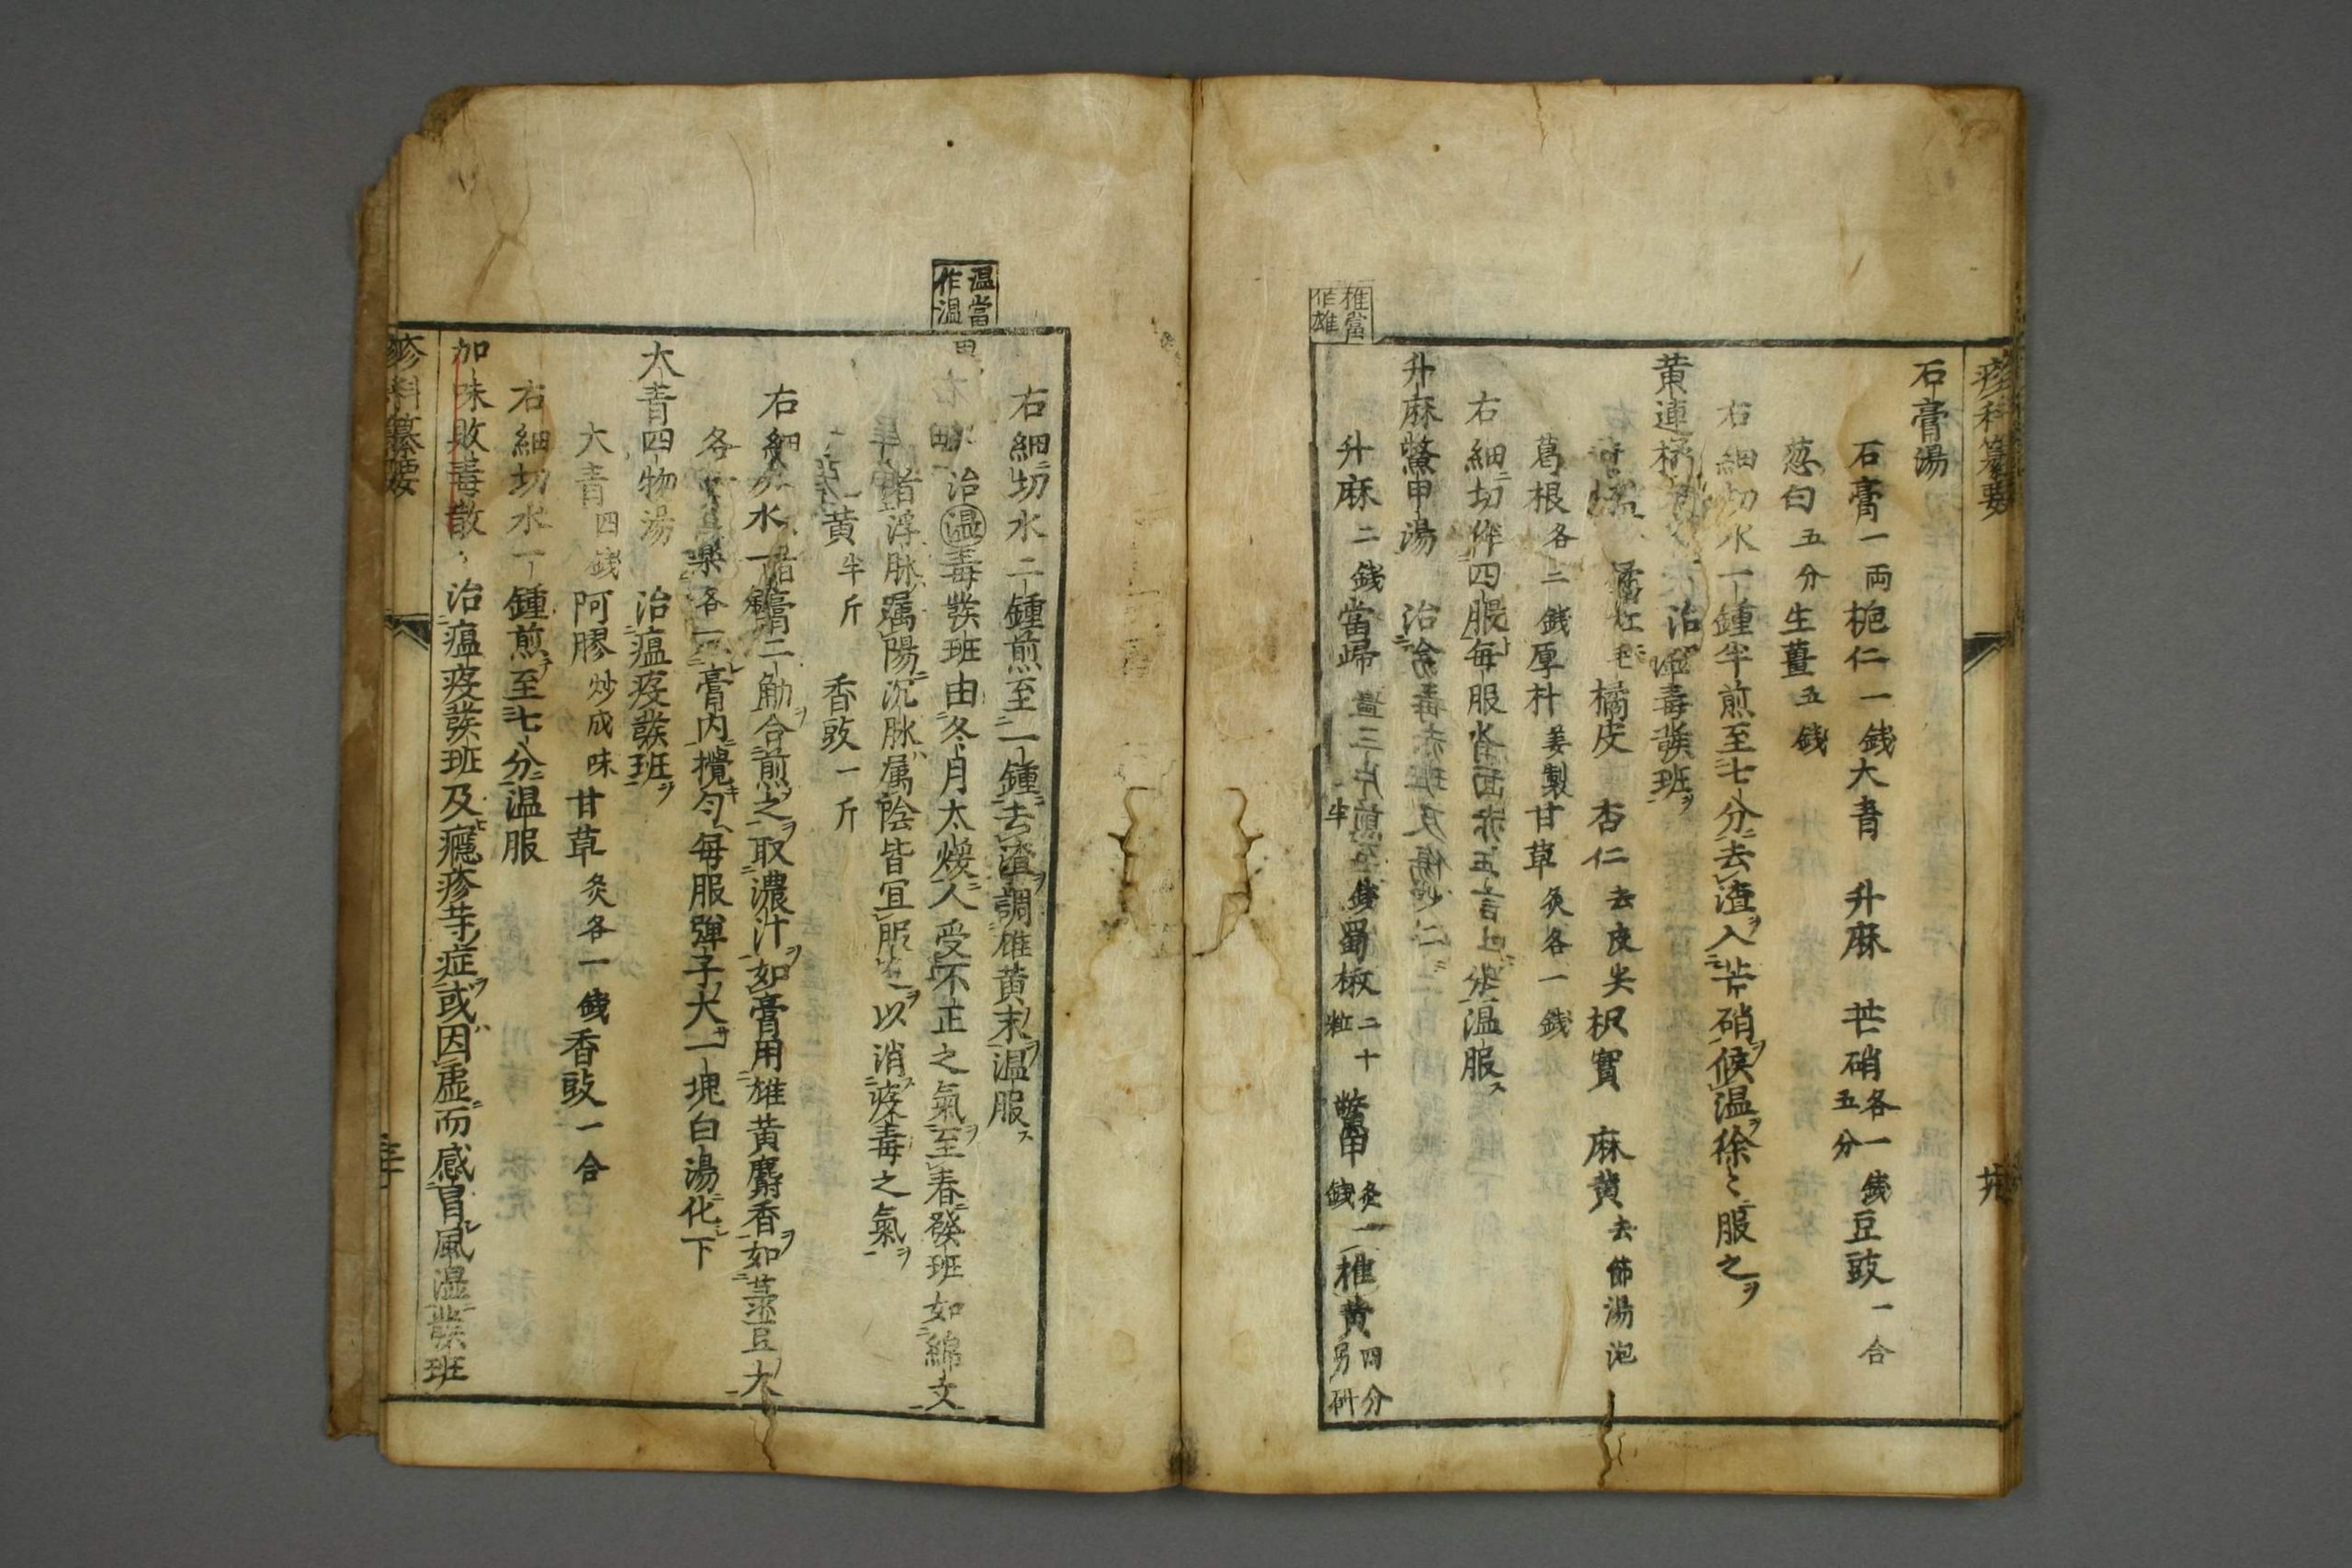 疹科纂要
石膏湯
石膏一両 梔仁一銭 大青 升麻 芒硝各一銭五分 豆豉一合
葱白五分 生薑五銭
右細切水一鍾半煎至七分去渣入芒硝候温徐々服之
黄連橘 治 毒發班
橘皮 杏仁去皮尖 枳實 麻黄去節湯泡
葛根各二銭 厚朴姜製 甘草炙各一銭
右細切作四服每服水 温服
升麻鱉甲湯 治
升麻二銭 當歸 蜀椒二十粒 鱉甲炙一銭 椎黄四分另研
椎當作雄
温當作温
右細切水二鍾煎至一鍾去渣調雄黄末温服
治温毒發班由冬月太煖人受不正之氣至春發班如綿文
者浮脉属陽沉脉属陰皆宜服 以消疫毒之氣
黄半斤 香豉一斤
右細 水一 膏二觔合煎之取濃汁如膏用雄黄麝香如 豆大
各 膏内攪勻每服彈子大一塊白湯化下
大青四物湯 治瘟疫發班
大青四銭 阿膠炒成味 甘草炙各一銭 香豉一合
右細切水一鍾煎至七分温服
加味敗毒散 治瘟疫發班及癮疹等症或因虚而感冒風湿發班
疹科纂要